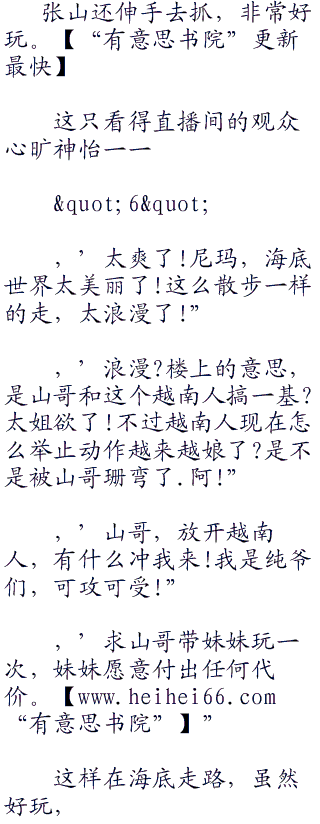 张山还伸手去抓，非常好
玩。【“有意思书院”更新
最快】
这只看得直播间的观众
心旷神怡一一
&quot;6&quot;
，’太爽了!尼玛，海底
世界太美丽了!这么散步一样
的走，太浪漫了!”
，’浪漫?楼上的意思，
是山哥和这个越南人搞一基?
太姐欲了!不过越南人现在怎
么举止动作越来越娘了?是不
是被山哥珊弯了.阿!”
，’山哥，放开越南
人，有什么冲我来!我是纯爷
们，可攻可受!”
，’求山哥带妹妹玩一
次，妹妹愿意付出任何代
价。【www.heihei66.com
“有意思书院”】”
这样在海底走路，虽然
好玩，